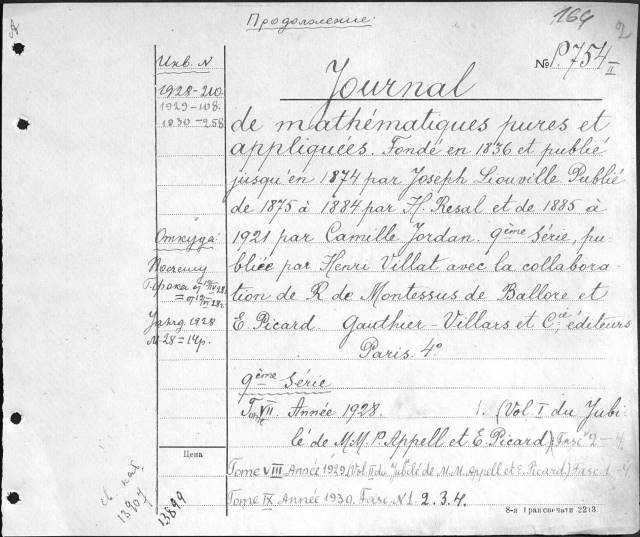 Продолжение:
164
2
No P.754 II
Инв. N
1928-210
1929-108.
1830-258
Journal
de mathématiques pures et
appliquées. Fondé en 1836 et publié
jusqu'en 1874 par Joseph Liouville. Publié
de 1875 à 1884 par H. Resal et de 1885 à
1921 par Camille Jordan. 9ème Série, pu-
bliée par Henri Villat avec la collabora-
tion de R de Montessus de Ballore et
E. Picard. Gauthier-Villars et Cie, éditeurs
Paris. 4°
Откуда:
1928
N. 28=14р.
9ème Série
Tome VII. Année 1928. 1. (Vol I du Jubi-
lé de MM. P. Appell et E. Picard) Fasc 2-4.
Tome VIII Année 1929 (Vol II du Jubilé de M.M. Appell et E. Picard) Fasc 1-4
Tome IX Année 1930. Fasc N1. 2. 3. 4.
Цена
13907
13899
8-я Транспечати 2213.